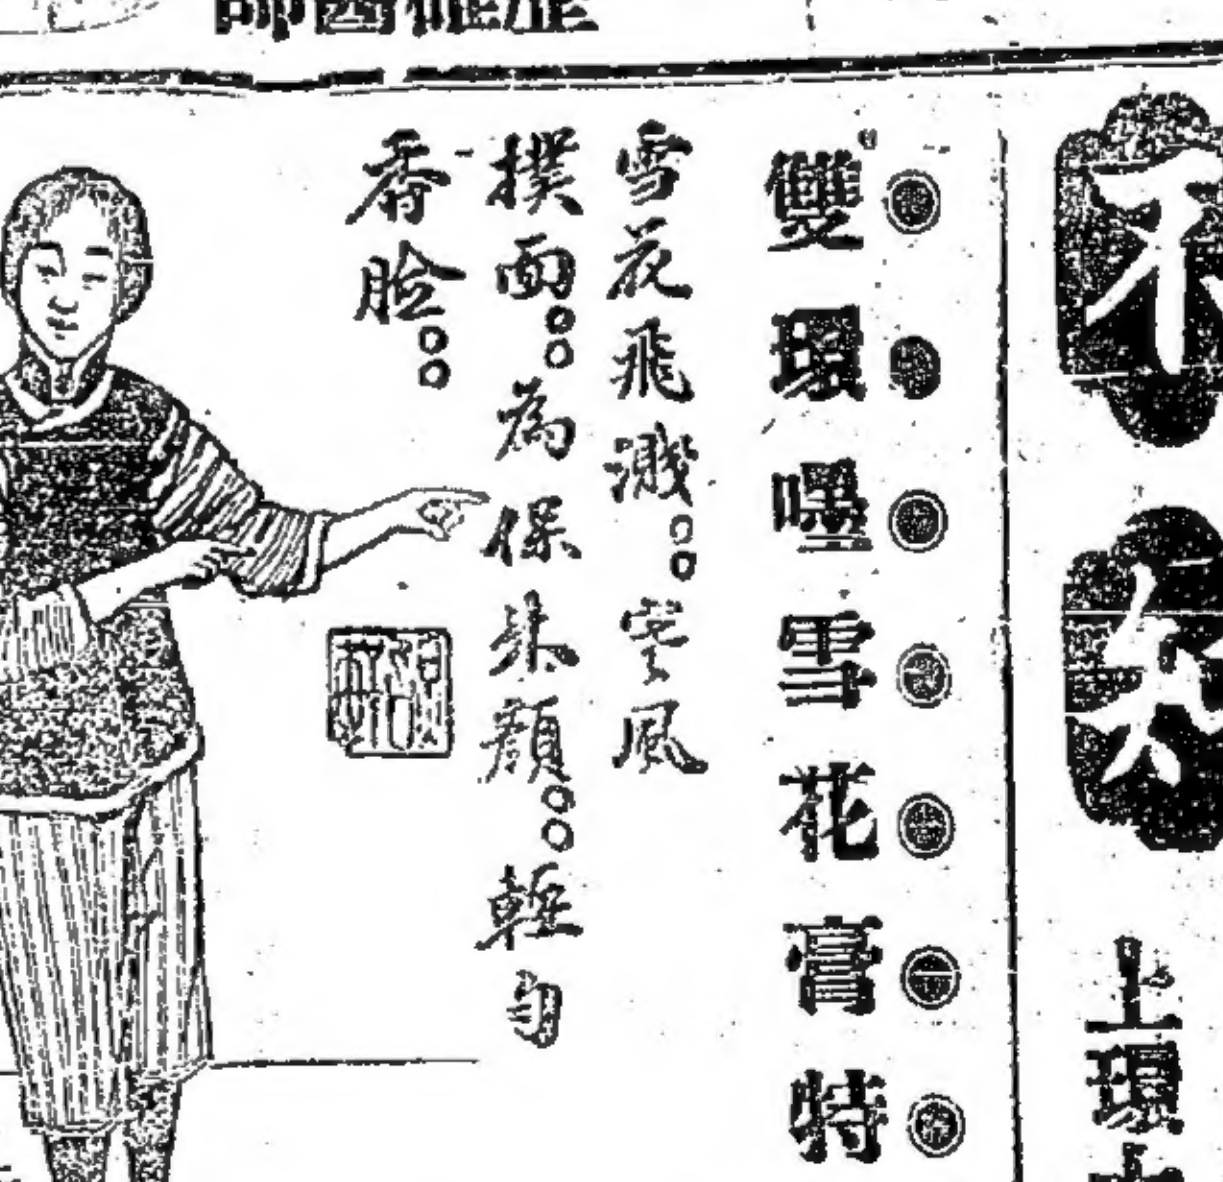 醫師
不知
上環
雙環嘿雪花膏特
雪花飛濺。。寒風
撲面。。為保朱顏。。輕勻
香臉。。